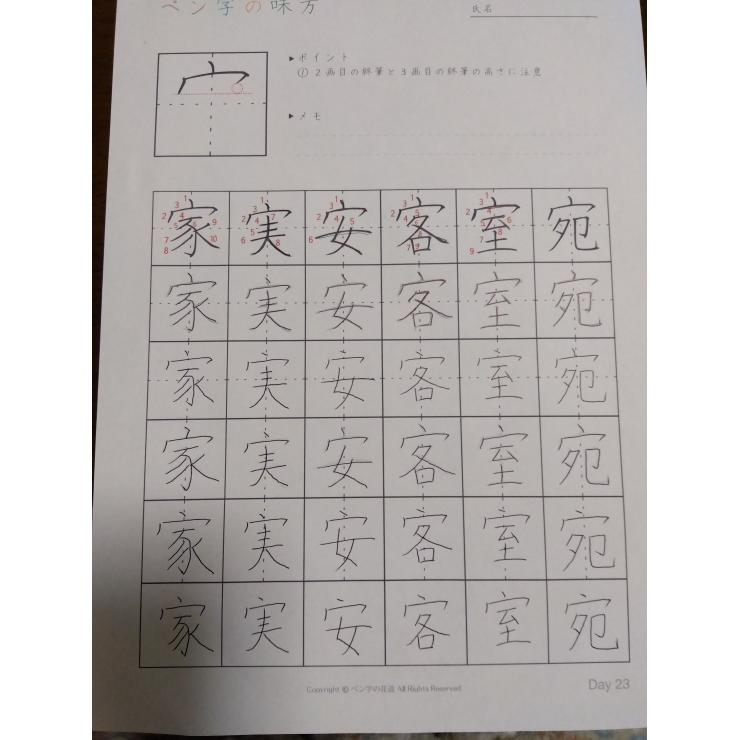 ペン字の味方
氏名
宀
▶ポイント
① 2画目の終筆と3画目の終筆の高さに注意
▶メモ
家 実 安 客 室 宛
家 実 安 客 室 宛
家 実 安 客 室 宛
家 実 安 客 室 宛
家 実 安 客 室 宛
家 実 安 客 室 宛
Copyright © ペン字の花道 All Rights Reserved
Day 23